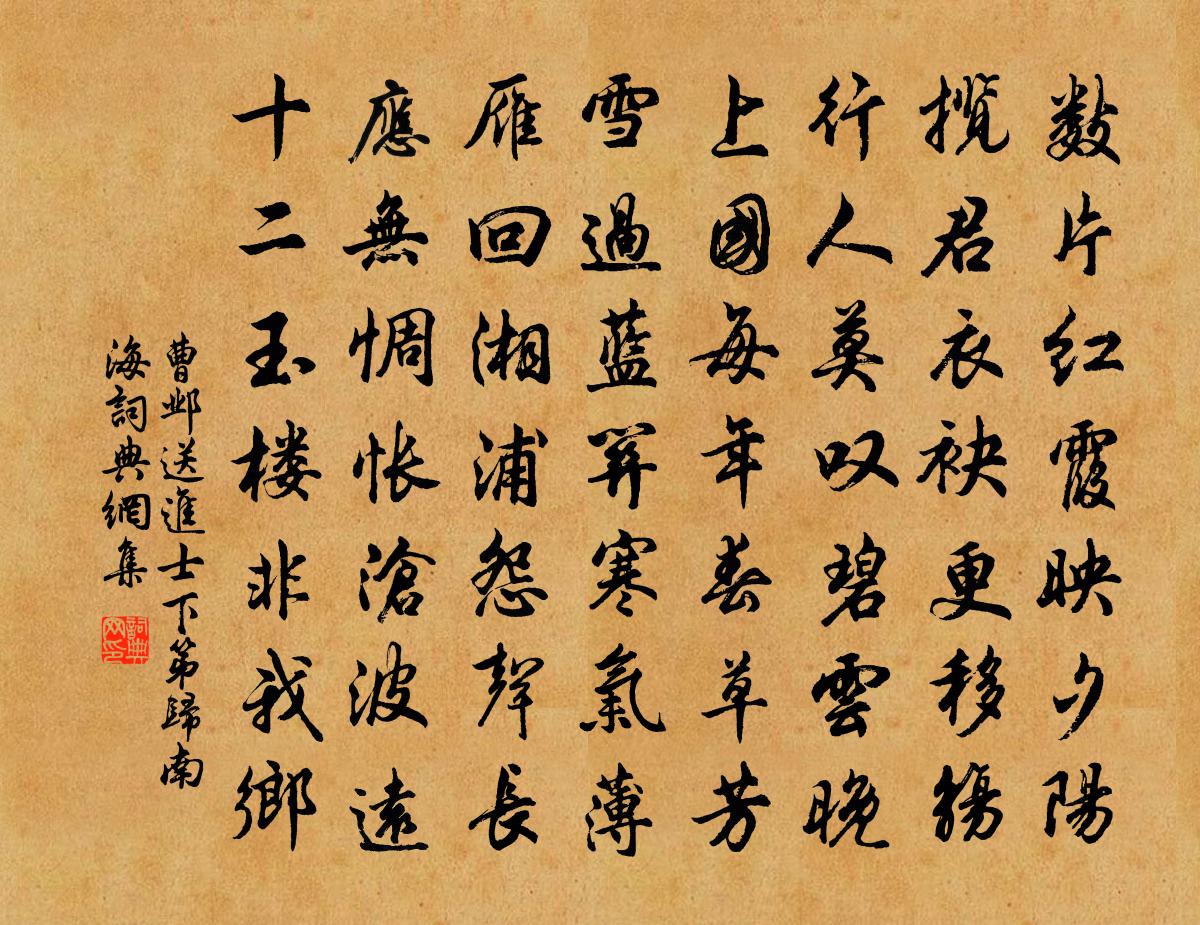 數片紅霞映夕陽
攬君衣袂更移觴
行人莫叹碧雲晚
上國每年春草芳
雪過藍關寒氣薄
雁回湘浦怨聲長
應無惆悵滄波遠
十二玉楼非我鄉
曹邺送進士下第歸南
海詞典網集
詞典网印